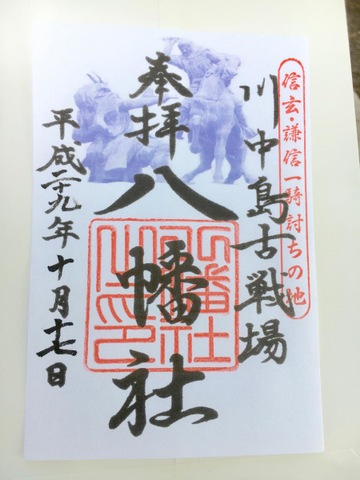 信玄・謙信一騎討ちの地
川中島古戦場
奉拝
八幡社
八幡社之印
平成二十九年十月十七日